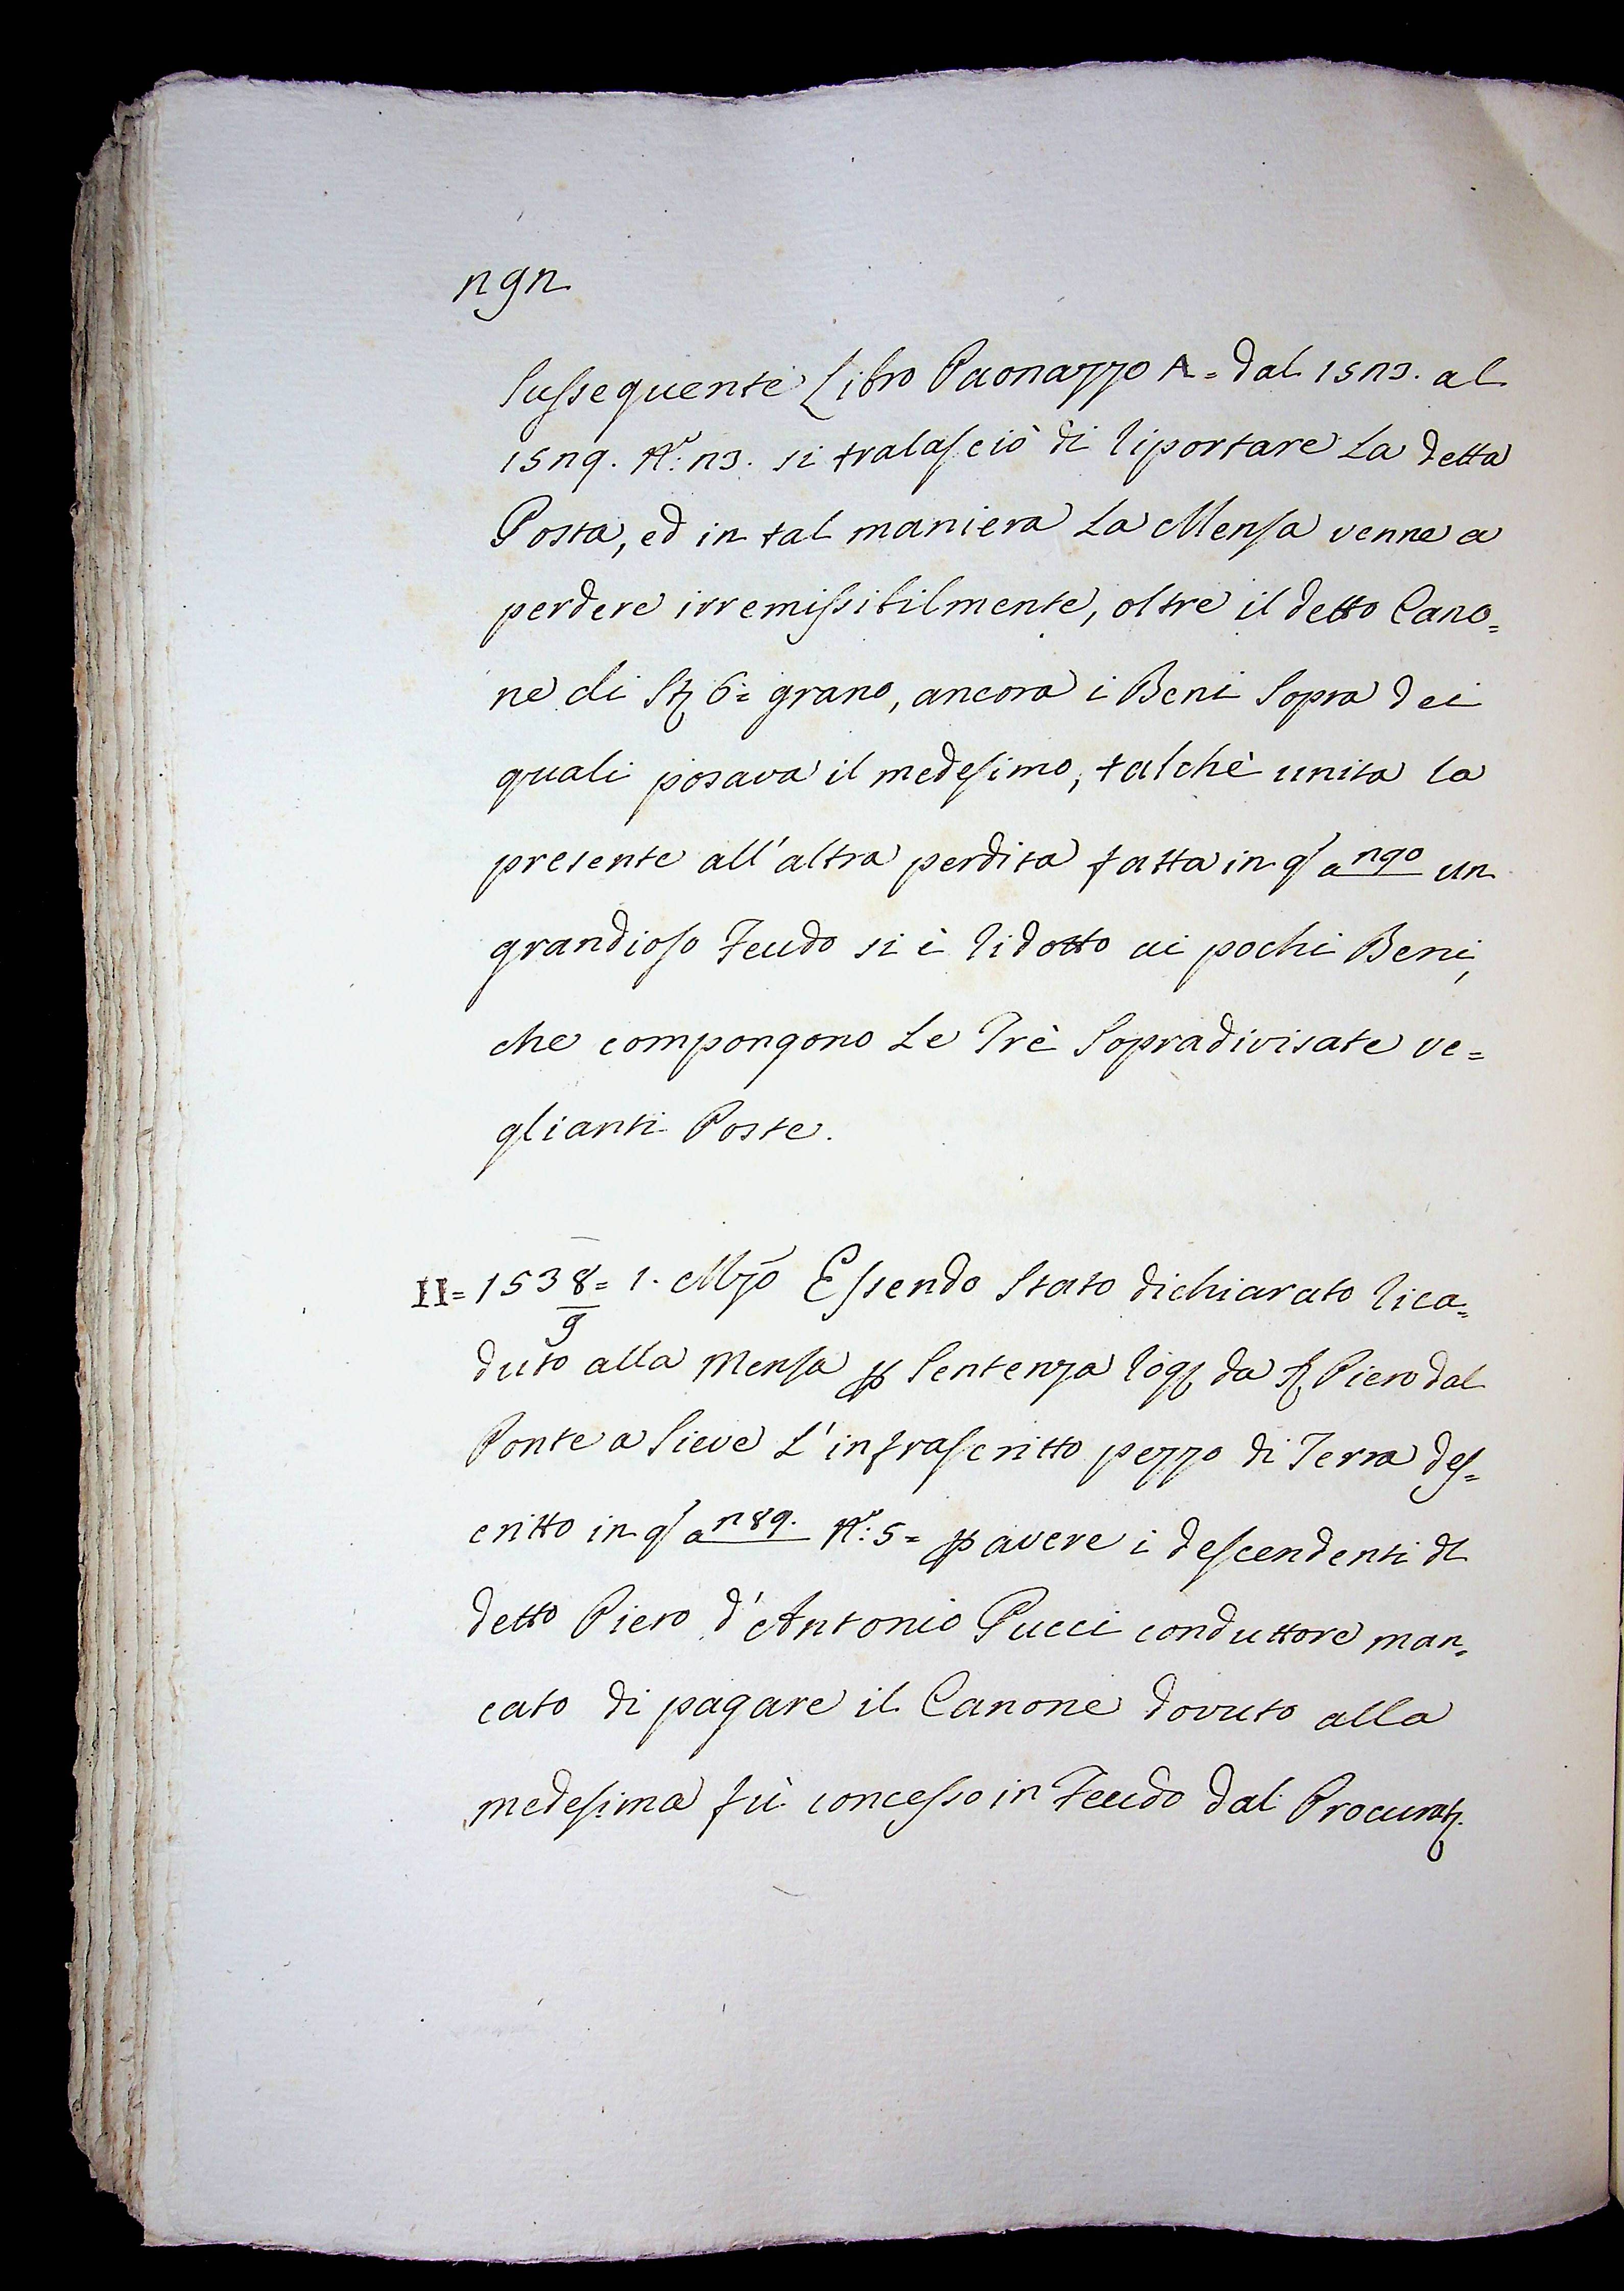 292
Sussequente Libro Paonazzo A = dal 1523. al
1529. N°: 23. si tralasciò di riportare La detta
Posta, ed in tal maniera La Mensa venne a
perdere irremissibilmente, oltre il detto Cano=
ne di St 6= grano, ancora i Beni Sopra dei
quali posava il medesimo, talchè unita la
presente all'altra perdita fatta in q a 290 un
grandioso Feudo si è ridotto ai pochi Beni,
che compongono Le Trè Sopradivisate ve=
glianti Poste.
II= 1538/9= 1. Mzo Essendo Stato dichiarato rica=
duto alla Mensa p Sentenza rog da S Piero dal
Ponte a Sieve L'infrascritto pezzo di Terra des=
critto in q a 289. N°: 5= p avere i descendenti dl
detto Piero d'Antonio Pucci conduttore man=
cato di pagare il Canone dovuto alla
medesima fù concesso in Feudo dal Procurat.